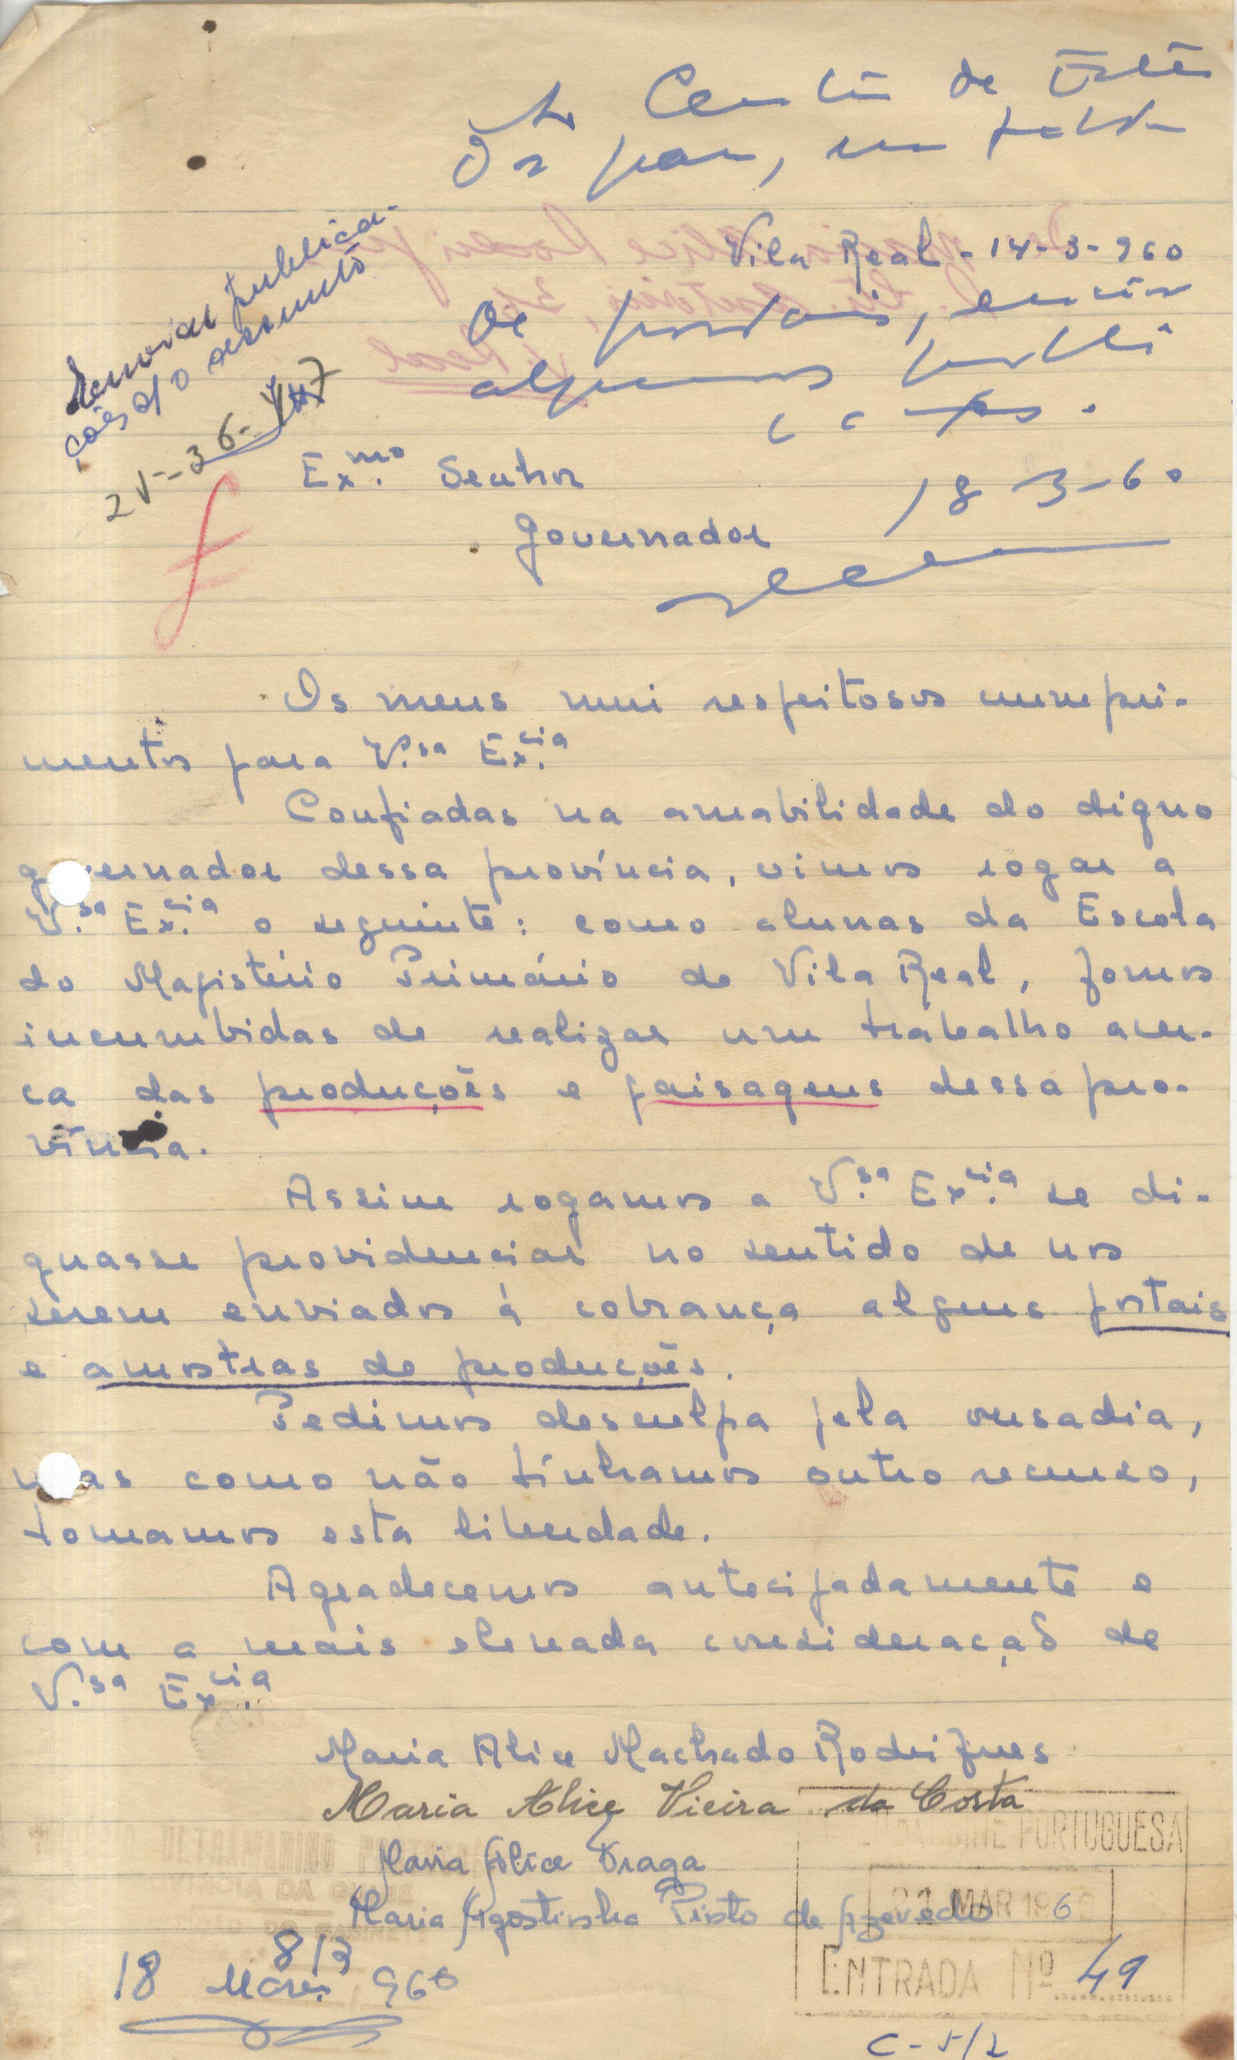 Ao Centro de
Vila Real - 14-3-960
publica-
ções s/ o assunto
Ex.mo Senhor
18-3-60
Governador
Os meus mui respeitosos cumpri-
mentos para V.sa Ex.cia
Confiadas na amabilidade do digno
governador dessa província, vimos rogar a
V.sa Ex.cia o seguinte: como alunas da Escola
do Magistério Primário de Vila Real, fomos
incumbidas de realizar um trabalho acer-
ca das produções e paisagens dessa pro-
víncia.
Assim rogamos a V.sa Ex.cia se di-
gnasse providenciar no sentido de nos
serem enviados à cobrança alguns postais
e amostras de produções.
Pedimos desculpa pela ousadia,
mas como não tínhamos outro recurso,
tomamos esta liberdade.
Agradecemos antecipadamente e
com a mais elevada consideração de
V.sa Ex.cia
Maria Alice Machado Rodrigues
Maria Alice Vieira da Costa
Maria Alice Braga
Maria Agostinha Pinto de Azevedo
PORTUGUESA
MAR 196
6
ENTRADA Nº 49
813
18 Março 960
C-5/2